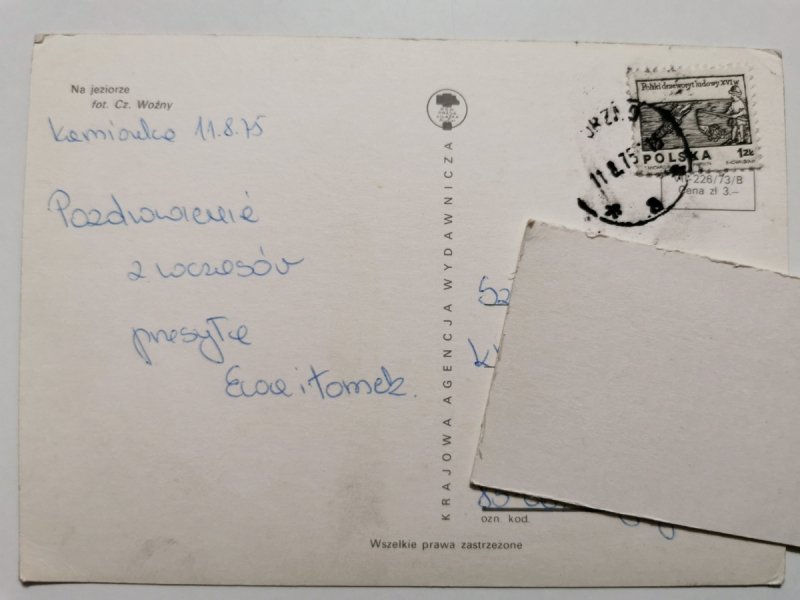 Na jeziorze
fot. Cz. Woźny
Kamionka 11.8.75
Pozdrowienia
z wczasów
przesyła
Ewa i Tomek.
KRAJOWA AGENCJA WYDAWNICZA
Polski drzeworyt ludowy XVI w
1 ZŁ
POLSKA
11.8.75
a
226/73/B
Cena zł 3.—
ozn. kod.
Wszelkie prawa zastrzeżone